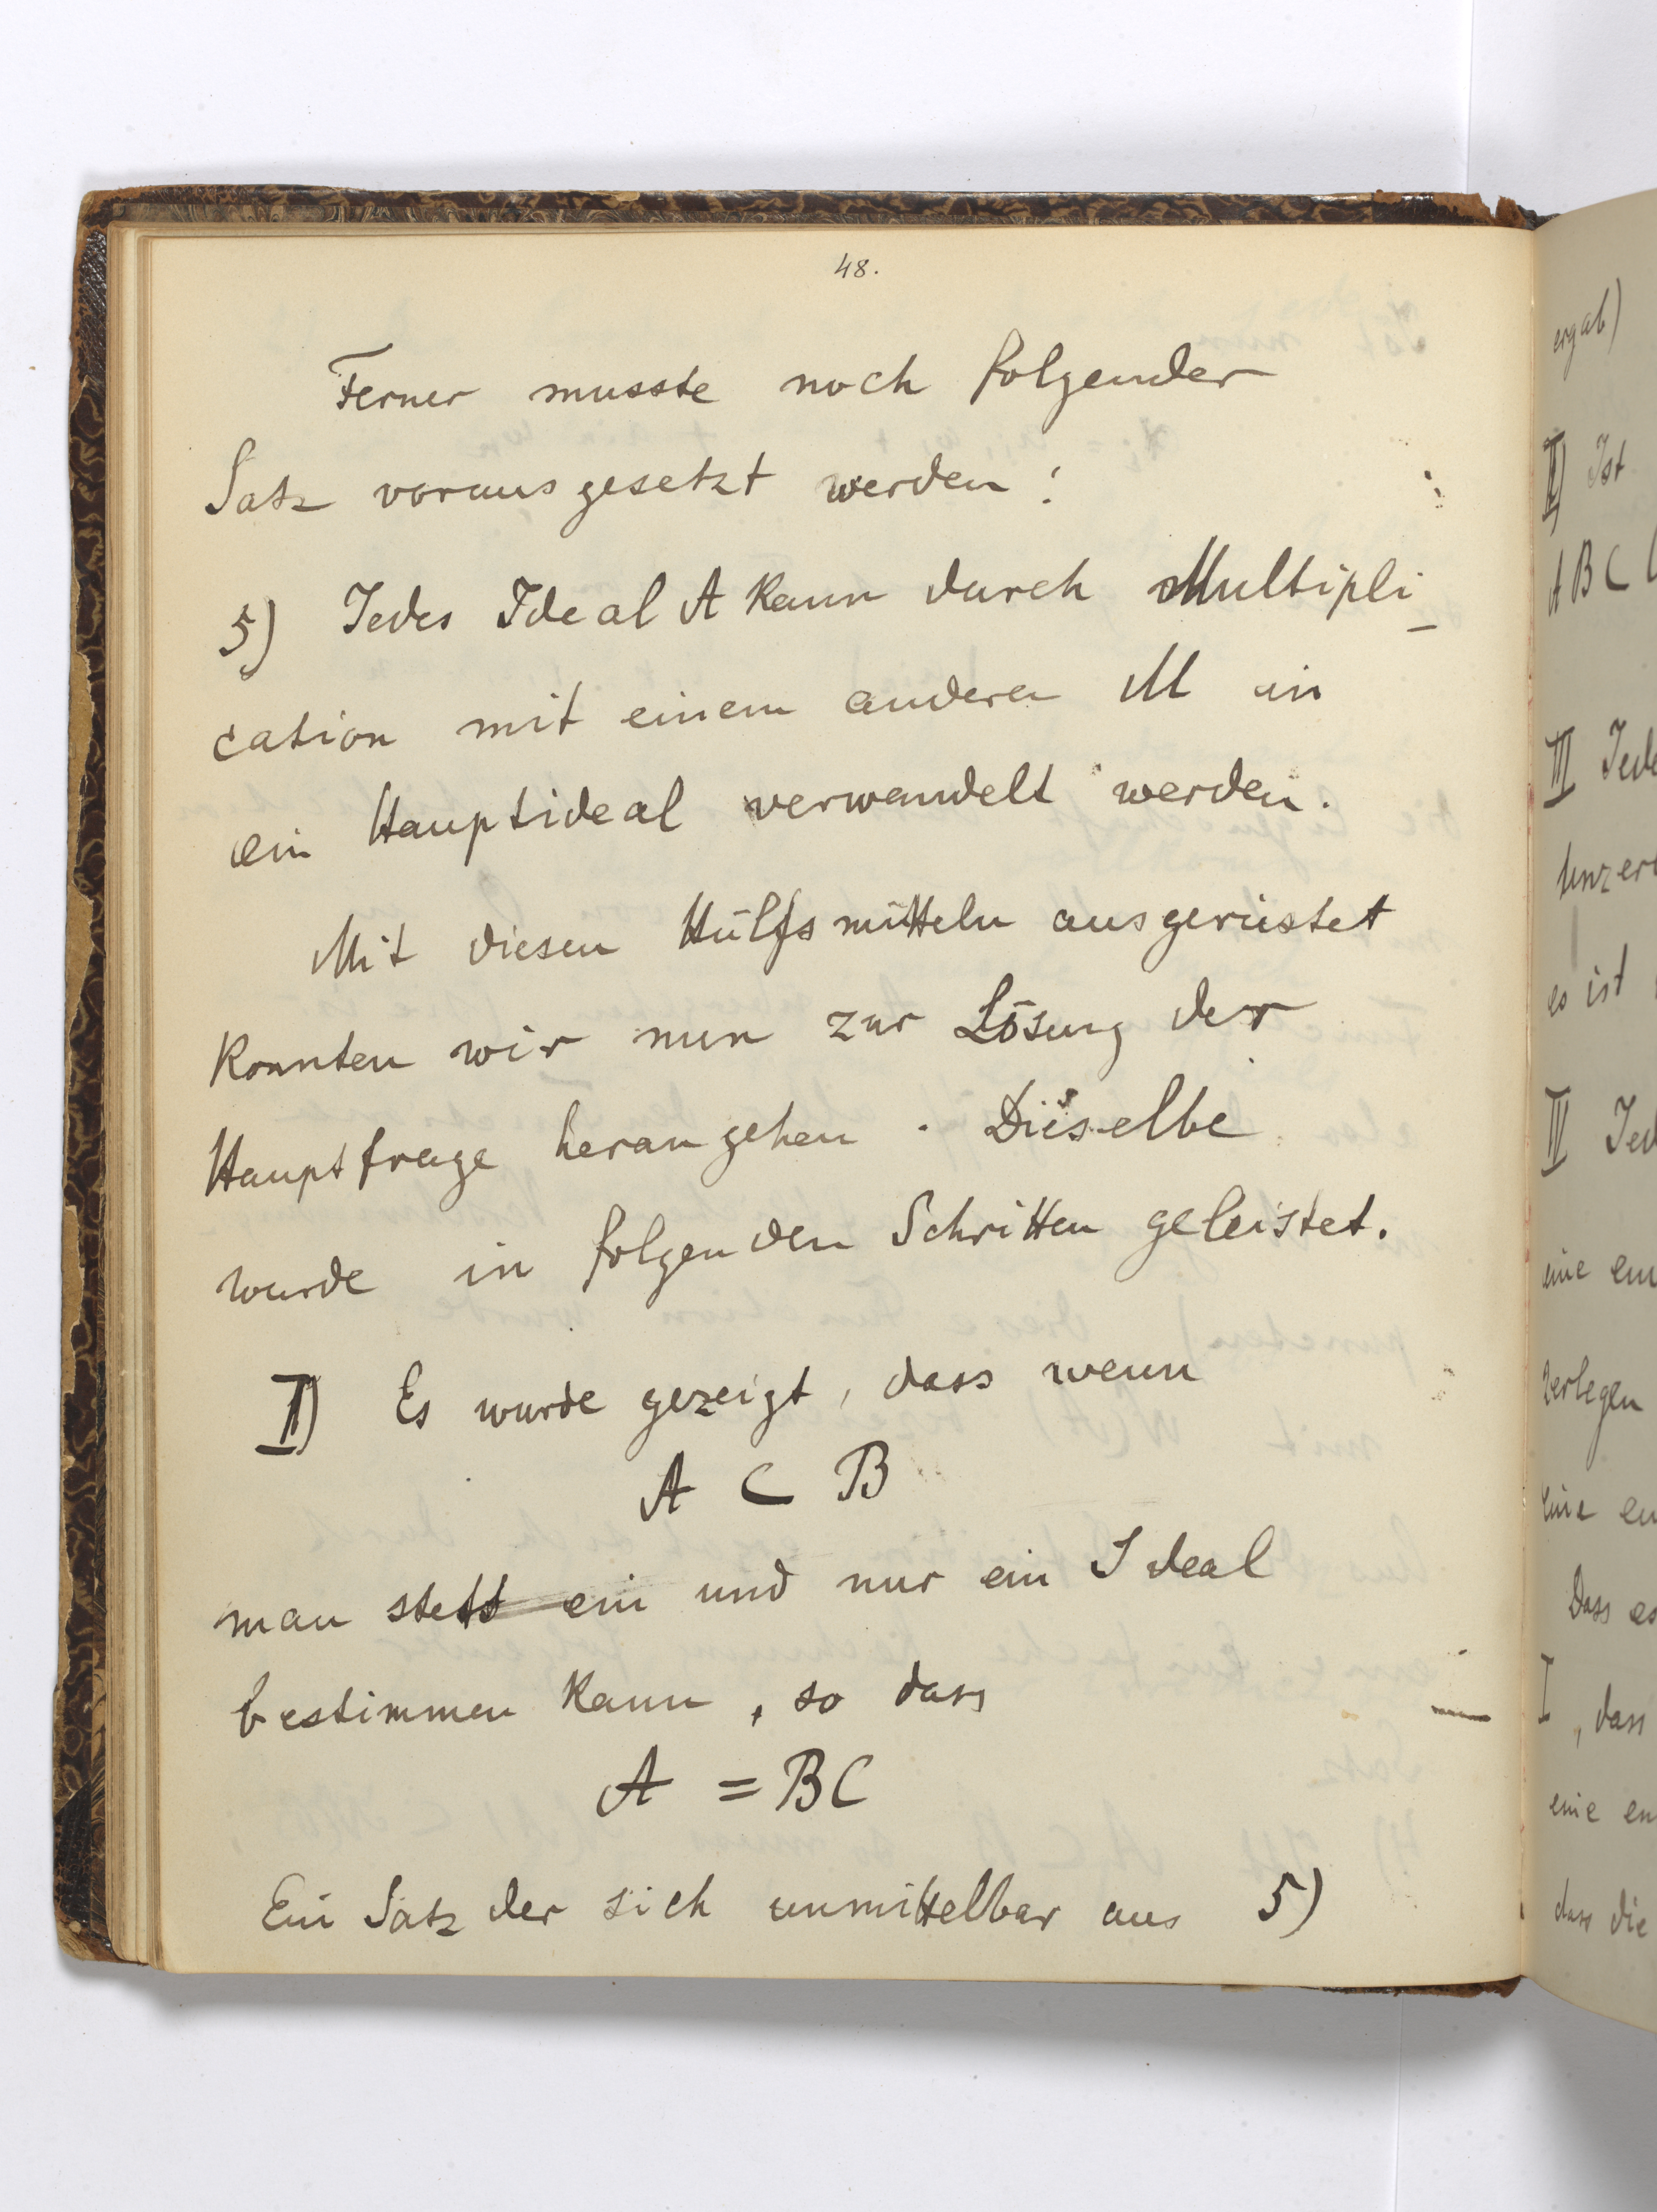 48.
Ferner musste noch folgender
Satz vorausgesetzt werden:
5) Jedes Ideal A kann durch Multipli-
cation mit einem anderen M in
ein Hauptideal verwandelt werden.
Mit diesen Hülfsmitteln ausgerüstet
konnten wir nun zur Lösung der
Hauptfrage herangehen. Dieselbe
wurde in folgenden Schritten geleistet.
I) Es wurde gezeigt, dass wenn
A ⊂ B
man stets ein und nur ein Ideal
bestimmen kann, so dass
A = BC
Ein Satz der sich unmittelbar aus 5)
ergab)
II) Ist
ABC
III Jede
unzer
es ist
IV Jed
eine en
zerlegen
eine en
Dass es
I, dass
eine en
dass die